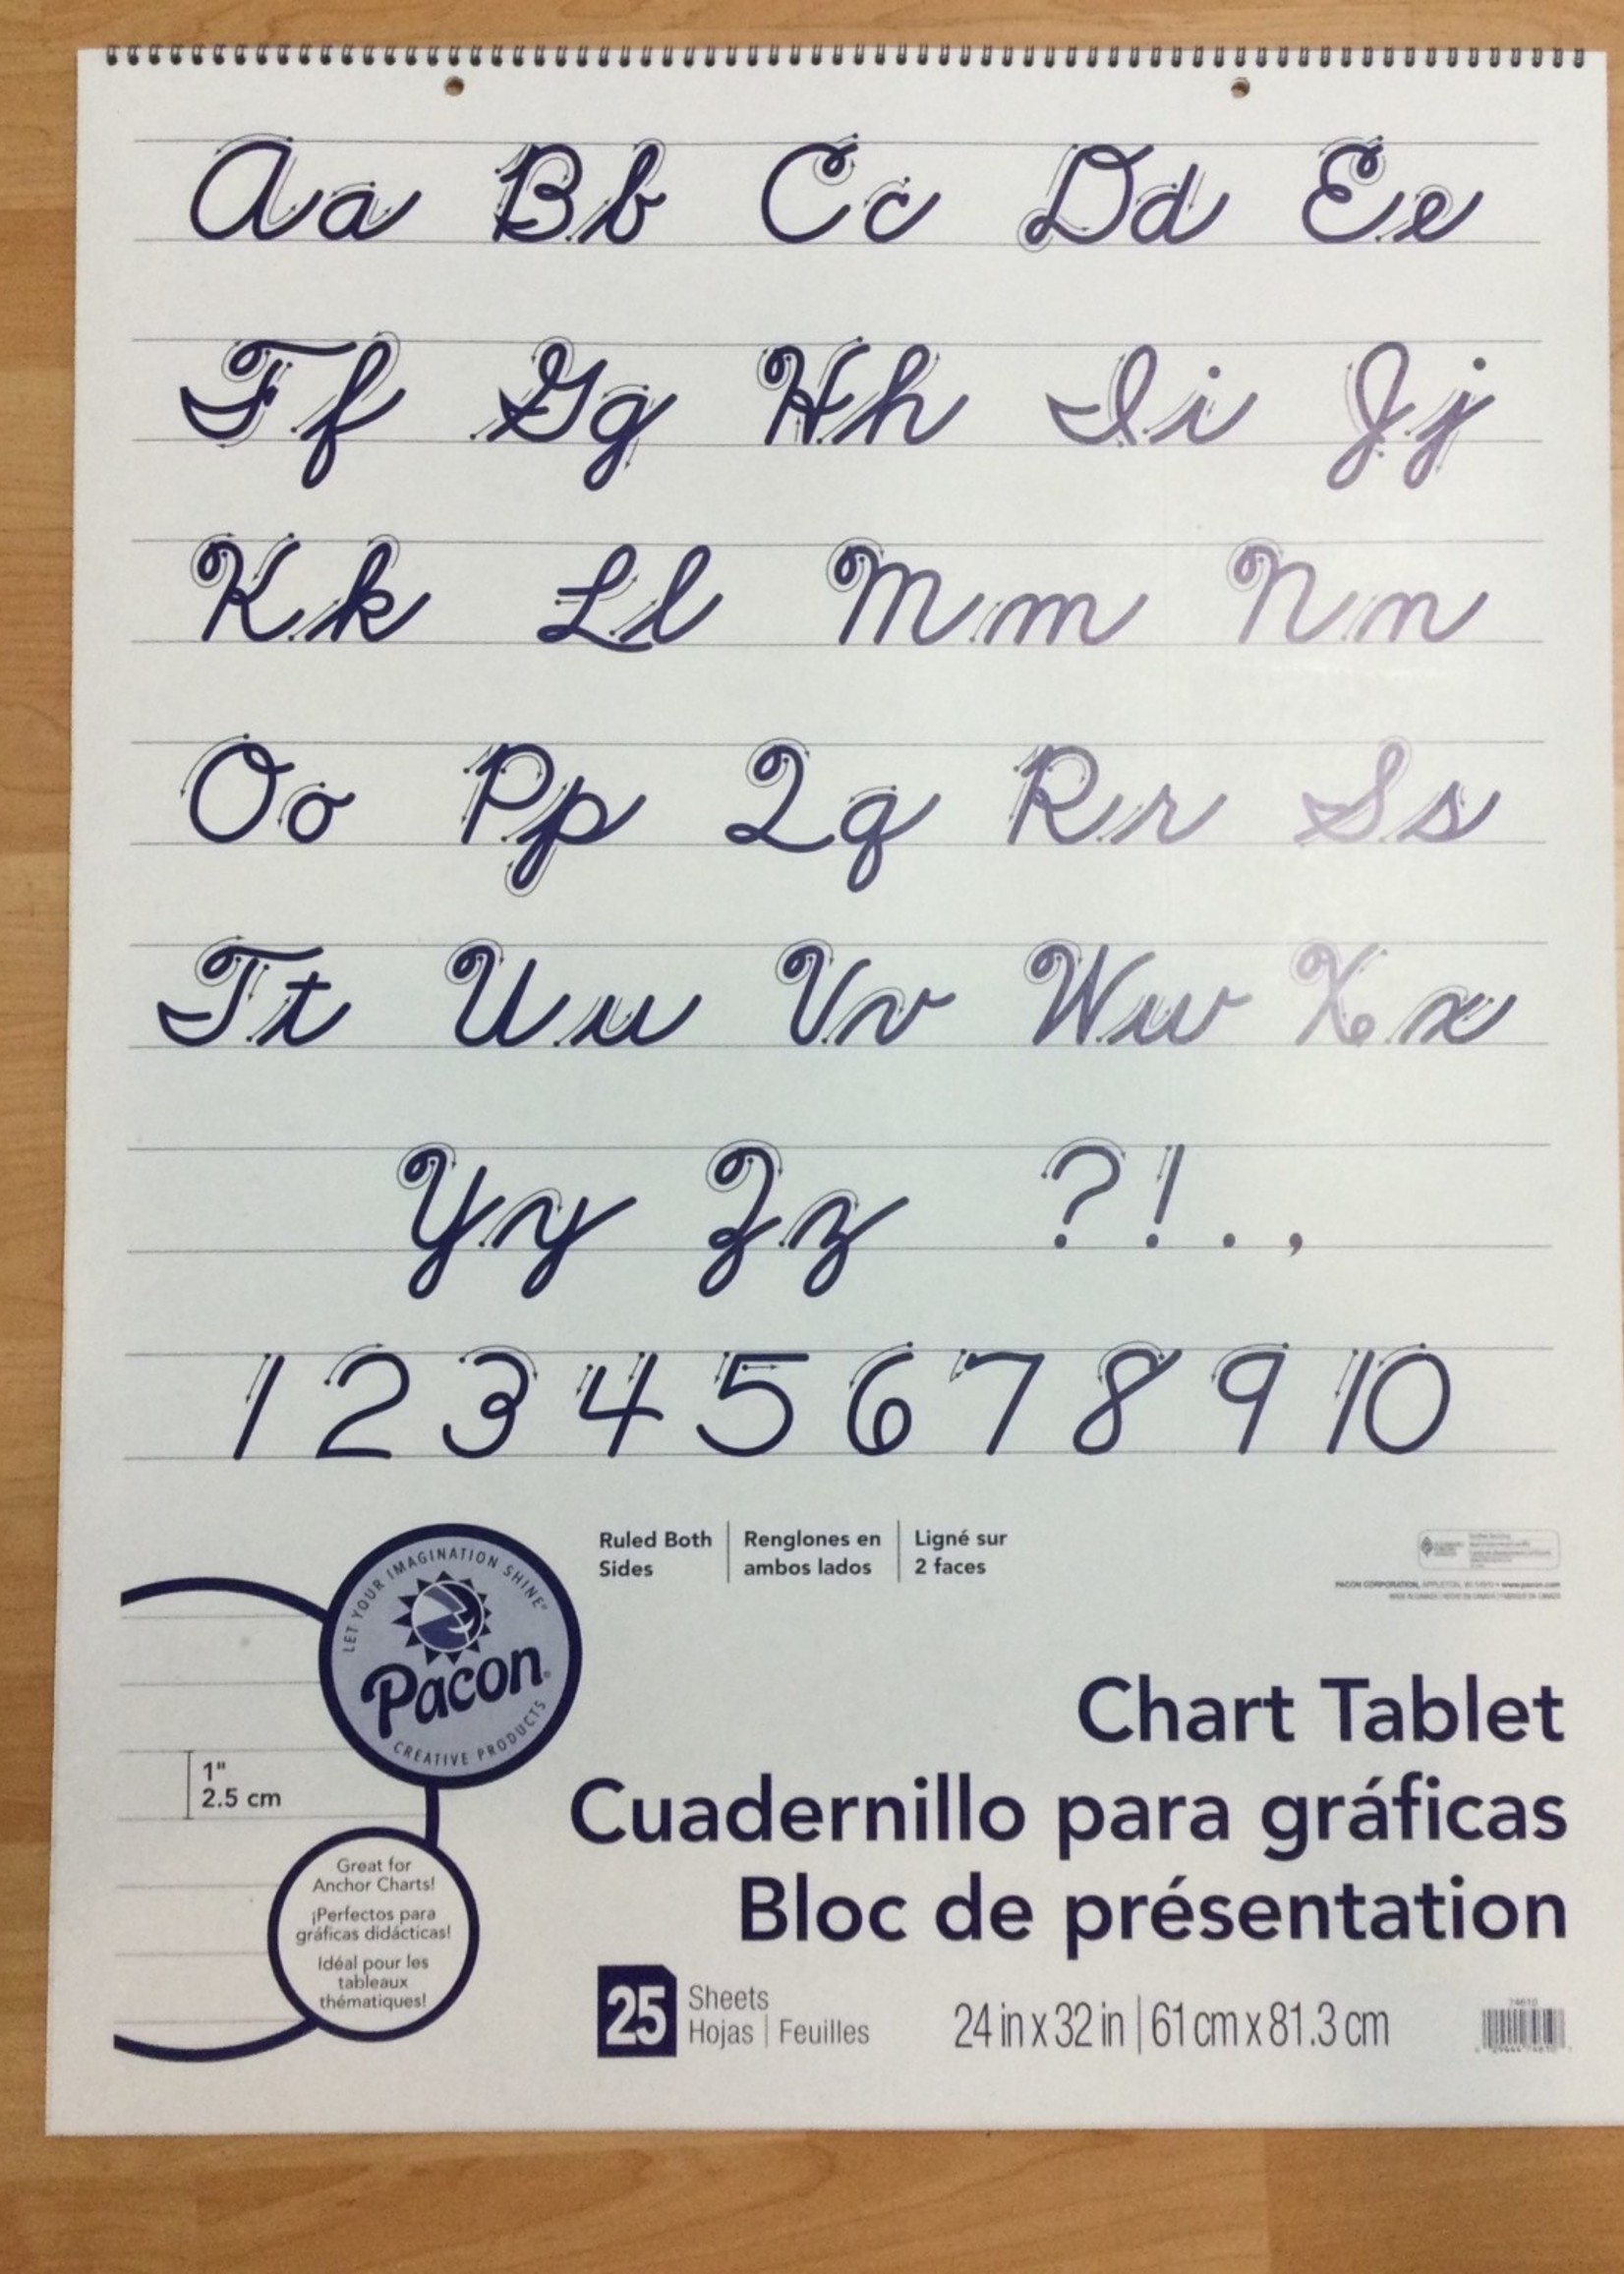 Aa Bb Cc Dd Ee
Ff Gg Hh Ii Jj
Kk Ll Mm Nn
Oo Pp Qq Rr Ss
Tt Uu Vv Ww Xx
Yy Zz ? ! . ,
1 2 3 4 5 6 7 8 9 10
Ruled Both
Sides
Renglones en
ambos lados
Ligné sur
2 faces
PACON CORPORATION, APPLETON, • www.pacon.com
LET YOUR IMAGINATION SHINE
Pacon
CREATIVE PRODUCTS
1"
2.5 cm
Great for
Anchor Charts!
¡Perfectos para
gráficas didácticas!
Idéal pour les
tableaux
thématiques!
Chart Tablet
Cuadernillo para gráficas
Bloc de présentation
25
Sheets
Hojas | Feuilles
24 in x 32 in | 61 cm x 81.3 cm
74610